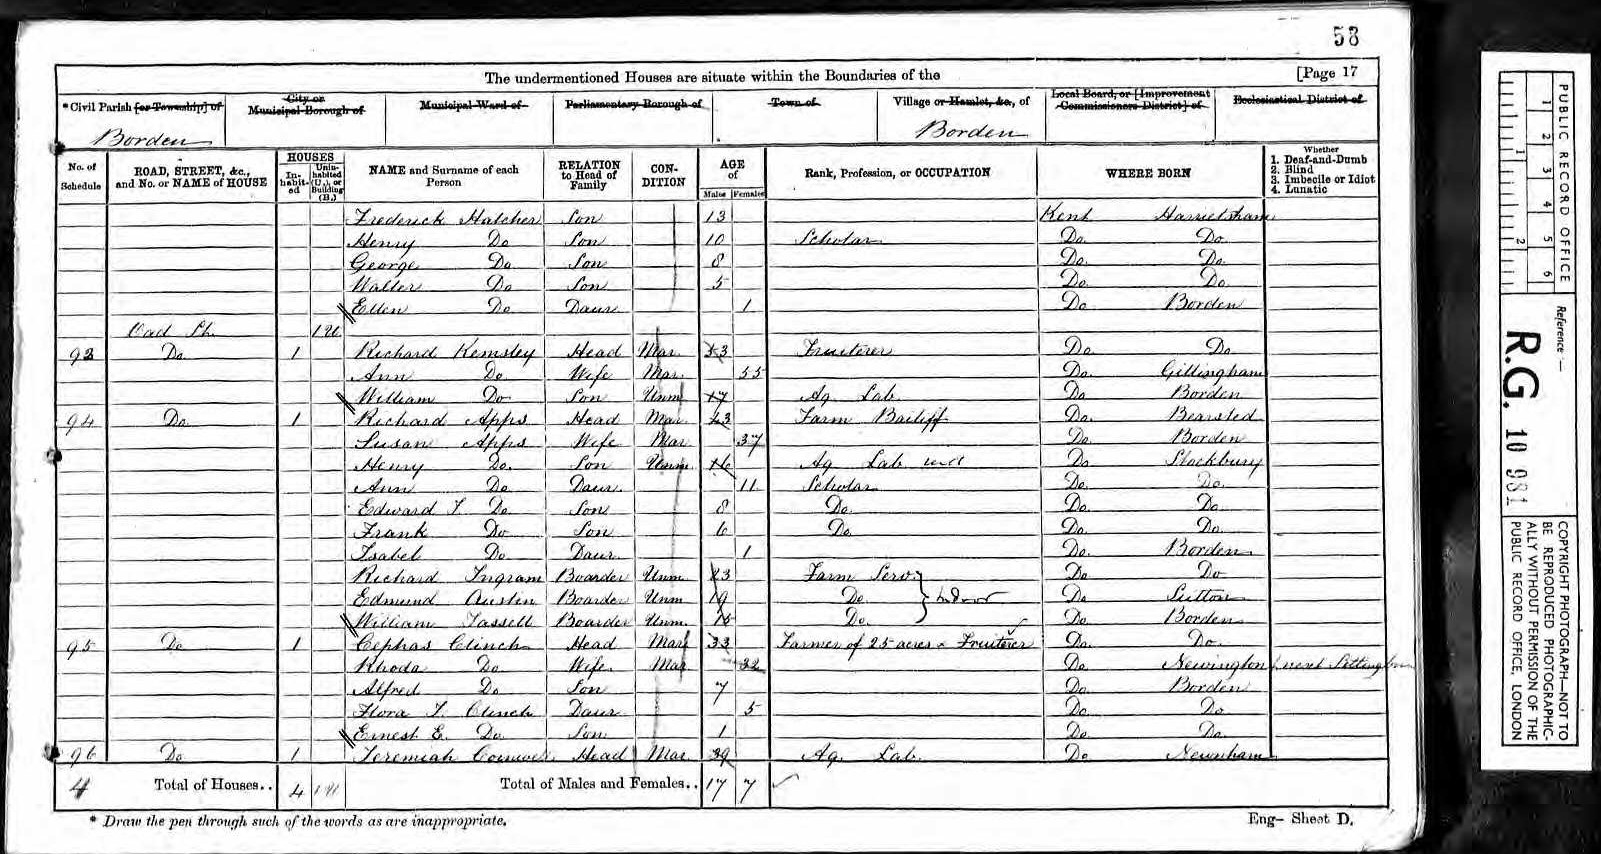 58
The undermentioned Houses are situate within the Boundaries of the [Page 17
*Civil Parish [or Township] of Borden
City or Municipal Borough of
Municipal Ward of
Parliamentary Borough of
Town of
Village or Hamlet, &c., of Borden
Local Board, or [Improvement Commissioners District] of
Ecclesiastical District of
No. of Schedule
ROAD, STREET, &c., and No. or NAME of HOUSE
HOUSES
In-habit-ed
Unin-habited (U.), or Building (B.)
NAME and Surname of each Person
RELATION to Head of Family
CON-DITION
AGE of
Males Females
Rank, Profession, or OCCUPATION
WHERE BORN
Whether
1. Deaf-and-Dumb
2. Blind
3. Imbecile or Idiot
4. Lunatic
Frederick Hatcher Son 13 Kent Harrietsham
Henry Do Son 10 Scholar Do Do
George Do Son 8 Do Do
Walter Do Son 5 Do Do
Ellen Do Daur 1 Do Borden
Oad St. 1 U
93 Do 1 Richard Kemsley Head Mar 53 Fruiterer Do Do
Ann Do Wife Mar 55 Do Gillingham
William Do Son Unm 17 Ag Lab Do Borden
94 Do 1 Richard Apps Head Mar 43 Farm Bailiff Do Bearsted
Susan Apps Wife Mar 37 Do Borden
Henry Do Son Unm 16 Ag Lab Do Stockbury
Ann Do Daur 11 Scholar Do Do
Edward T. Do Son 8 Do Do Do
Frank Do Son 6 Do Do Do
Isabel Do Daur 1 Do Borden
Richard Ingram Boarder Unm 23 Farm Serv Do Do
Edmund Austin Boarder Unm 19 Do Indoor Do Sutton
William Tassell Boarder Unm 15 Do Do Borden
95 Do 1 Cephas Clinch Head Mar 33 Farmer of 25 acres & Fruiterer Do Do
Rhoda Do Wife Mar 32 Do Newington (next Sittingbourne
Alfred Do Son 7 Do Borden
Flora T. Clinch Daur 5 Do Do
Ernest E. Do Son 1 Do Do
96 Do 1 Jeremiah Head Mar 39 Ag Lab Do Newnham
4 Total of Houses.. 4 1 U Total of Males and Females.. 17 7
* Draw the pen through such of the words as are inappropriate.
Eng- Sheet D.
PUBLIC RECORD OFFICE
1 2 3 4 5 6
1 2
Reference:-
R.G. 10 981
COPYRIGHT PHOTOGRAPH-NOT TO
BE REPRODUCED PHOTOGRAPHIC-
ALLY WITHOUT PERMISSION OF THE
PUBLIC RECORD OFFICE, LONDON